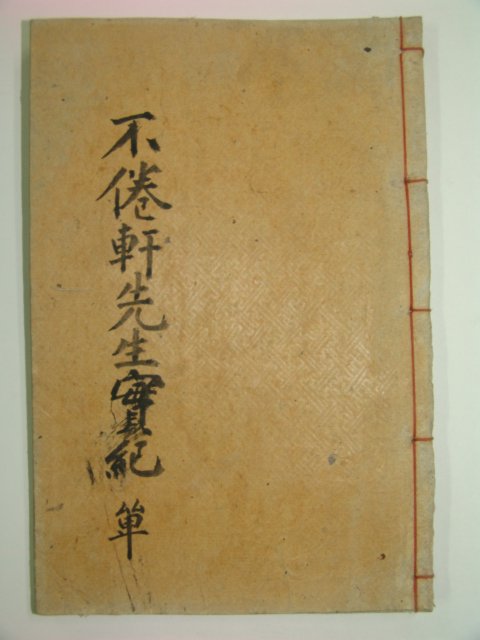 不倦軒先生實紀 單